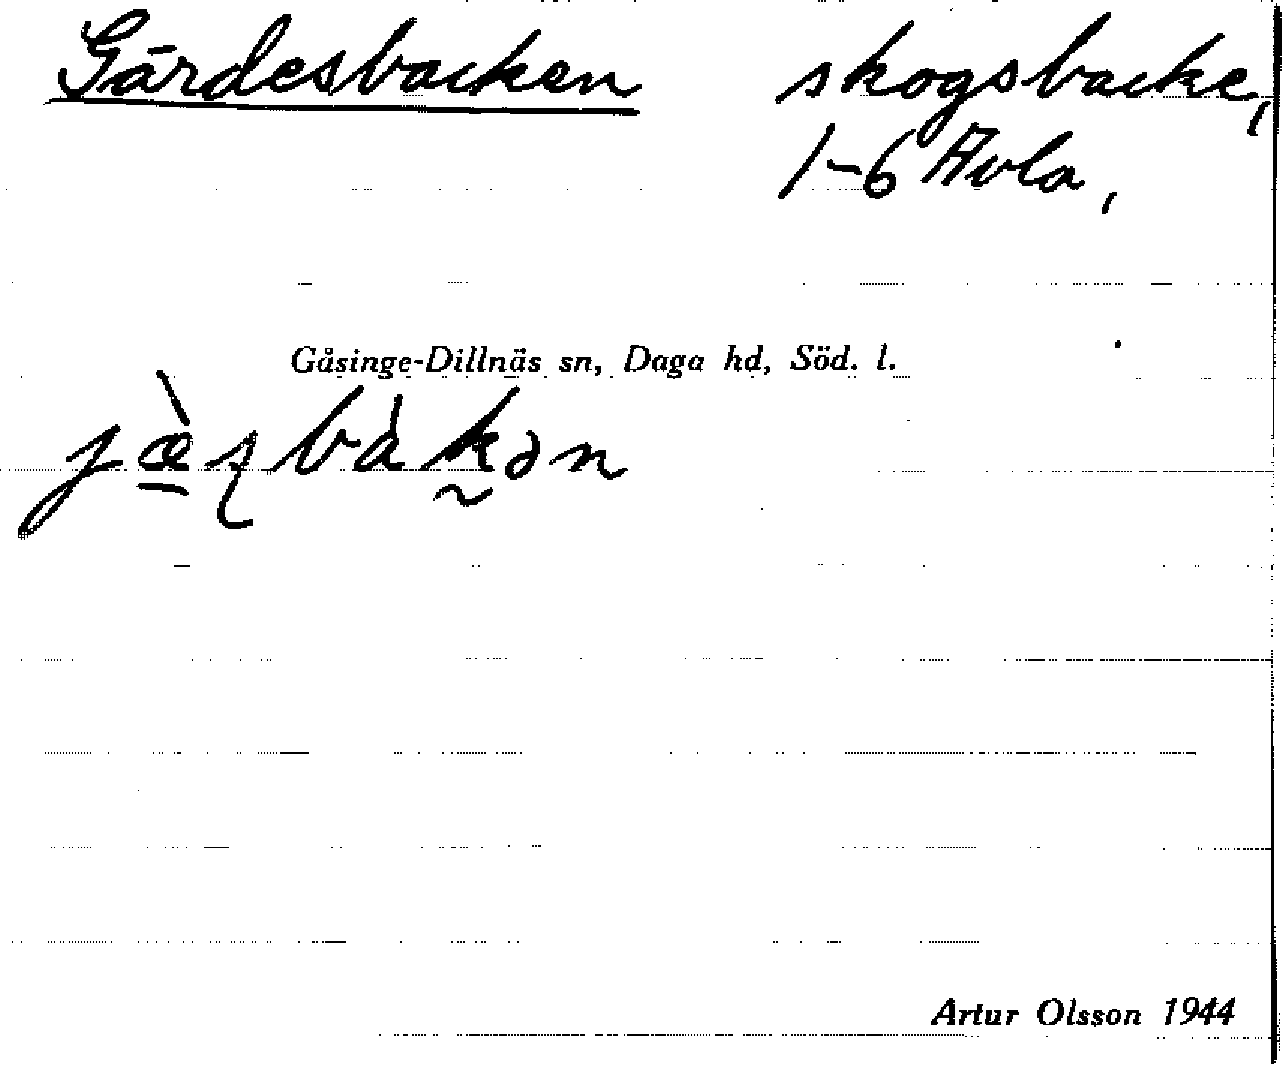 Gärdesbacken
skogsbacke,
1-6 Avla,
Gåsinge-Dillnäs sn, Daga hd, Söd. l.
Artur Olsson 1944